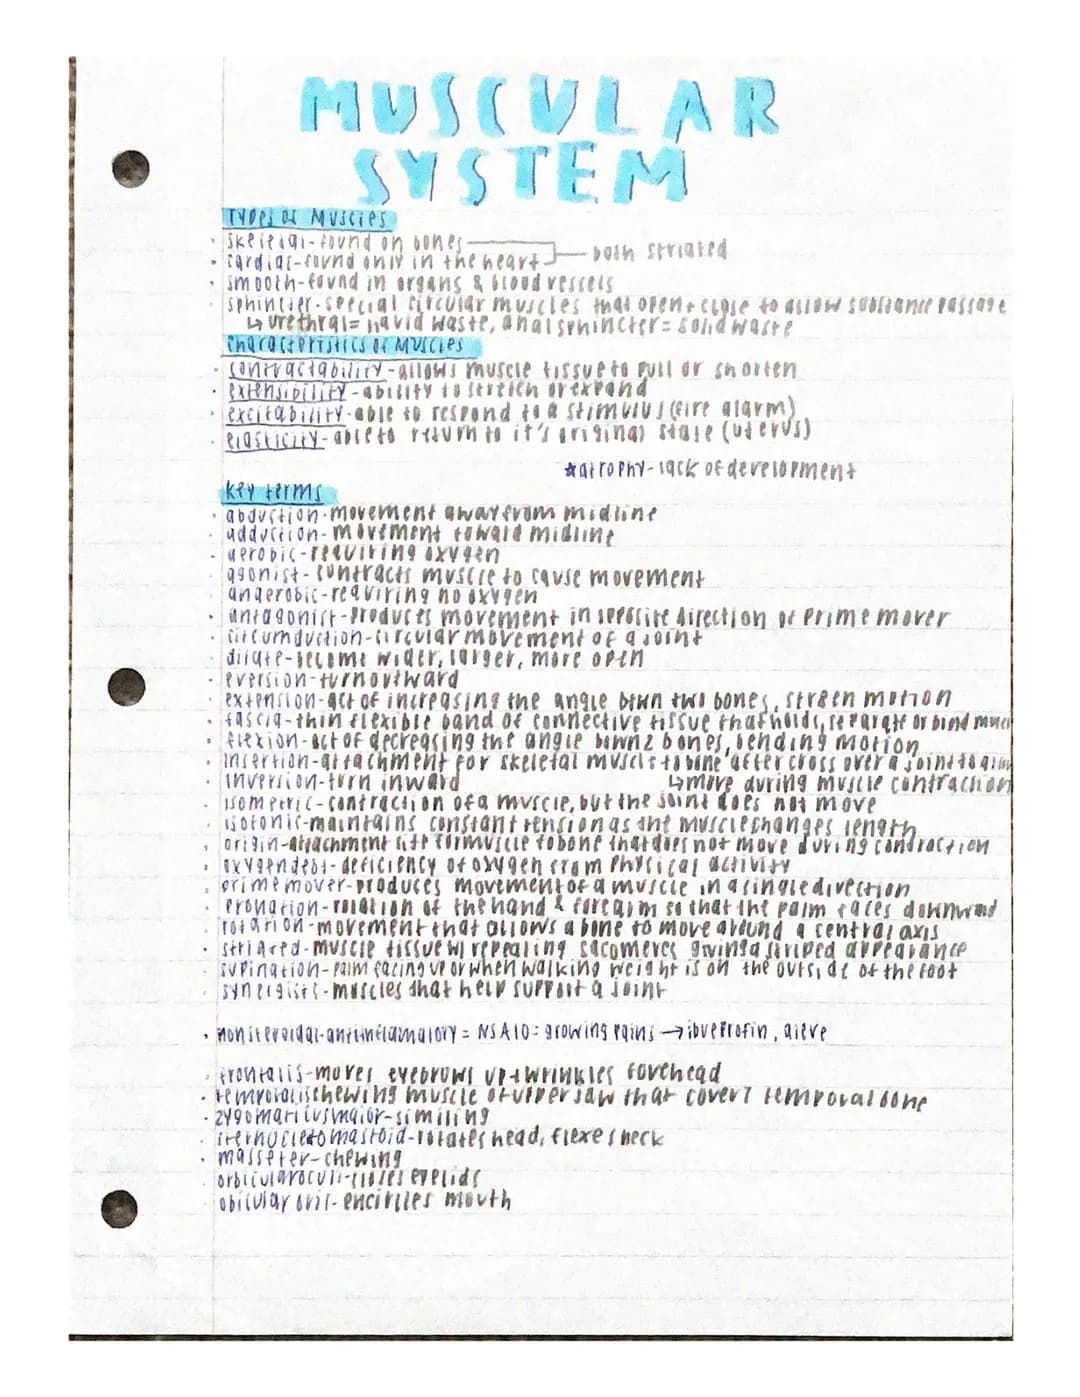 MUSCULAR
SYSTEM
Types of Muscles
· skeletal-found on bones
· cardiac-found only in the heart
both striated
· smooth-found in organs & blood vessels
· sphincter-special circular muscles that open + close to allow substance passage
↳ urethral= navid waste, anal sphincter= solid waste
Characteristics of Muscles
· contractability-allows muscle tissue to pull or shorten
· extensibility-ability to stretch or expand
· excitability-able to respond to a stimulus (fire alarm)
· elasticity-able to return to it's original state (uterus)
*atrophy-lack of development
Key terms
· abduction-movement away from midline
· adduction-movement toward midline
· aerobic-requiring oxygen
· agonist-contracts muscle to cause movement
· anaerobic-requiring no oxygen
· antagonist-produces movement in opposite direction of prime mover
· circumduction-circular movement of a joint
· dilate-become wider, larger, more open
· eversion-turn outward
· extension-act of increasing the angle btwn two bones, motion
· fascia-thin flexible band of connective tissue that holds, separate or bind
· flexion-act of decreasing the angle 2 bones, bending motion
· insertion-attachment for skeletal muscle to bone after cross over a joint to
· inversion-turn inward
↳move during muscle contraction
· isometric-contraction of a muscle, but the joint does not move
· isotonic-maintains constant tension as the muscle changes length
· origin-attachment site for muscle to bone that does not move during contraction
· oxygen debt-deficiency of oxygen from physical activity
· prime mover-produces movement of a muscle in a single direction
· pronation-rotation of the hand & forearm so that the palm faces downward
· rotation-movement that allows a bone to move around a central axis
· striated-muscle tissue w/ repeating sacomeres giving a striped appearance
· supination-palm facing up or when walking weight is on the outside of the foot
· synergists-muscles that help support a joint
· nonsteroidal-antiinflamatory = NSAID= growing pains → ibueprofin, aleve
· frontalis-moves eyebrows up + wrinkles forehead
· temporalis chewing muscle of upper jaw that covers temporal bone
· zygomaticus major-similing
· sternocleto mastoid-rotates head, flexes neck
· masseter-chewing
· orbicular oculi-closes eyelids
· obicular oris-encirlles mouth